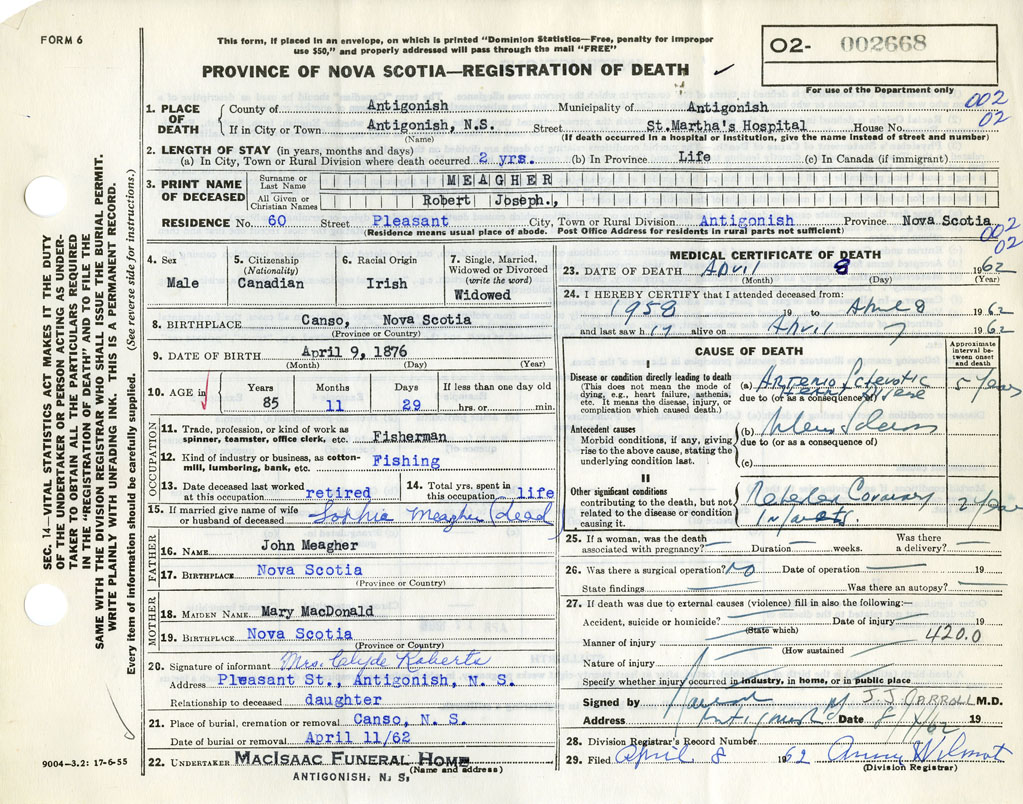 FORM 6
This form, if placed in an envelope, on which is printed "Dominion Statistics—Free, penalty for improper
use $50," and properly addressed will pass through the mail "FREE"
PROVINCE OF NOVA SCOTIA—REGISTRATION OF DEATH
O2- 002668
For use of the Department only
002
02
SEC. 14—VITAL STATISTICS ACT MAKES IT THE DUTY
OF THE UNDERTAKER OR PERSON ACTING AS UNDER-
TAKER TO OBTAIN ALL THE PARTICULARS REQUIRED
IN THE "REGISTRATION OF DEATH" AND TO FILE THE
SAME WITH THE DIVISION REGISTRAR WHO SHALL ISSUE THE BURIAL PERMIT.
WRITE PLAINLY WITH UNFADING INK. THIS IS A PERMANENT RECORD.
Every item of information should be carefully supplied. (See reverse side for instructions.)
1. PLACE OF DEATH
County of Antigonish Municipality of Antigonish
If in City or Town Antigonish, N.S. Street St.Martha's Hospital House No.
(Name) (If death occurred in a hospital or institution, give the name instead of street and number)
2. LENGTH OF STAY (in years, months and days)
(a) In City, Town or Rural Division where death occurred 2 yrs. (b) In Province Life (c) In Canada (if immigrant)
3. PRINT NAME OF DECEASED
Surname or Last Name MEAGHER
All Given or Christian Names Robert Joseph.,
RESIDENCE No. 60 Street Pleasant City, Town or Rural Division Antigonish Province Nova Scotia
(Residence means usual place of abode. Post Office Address for residents in rural parts not sufficient)
002
02
4. Sex
Male
5. Citizenship
(Nationality)
Canadian
6. Racial Origin
Irish
7. Single, Married,
Widowed or Divorced
(write the word)
Widowed
8. BIRTHPLACE Canso, Nova Scotia
(Province or Country)
9. DATE OF BIRTH April 9, 1876
(Month) (Day) (Year)
10. AGE in Years Months Days If less than one day old
85 11 29 hrs. or min.
OCCUPATION
11. Trade, profession, or kind of work as
spinner, teamster, office clerk, etc. Fisherman
12. Kind of industry or business, as cotton-
mill, lumbering, bank, etc. Fishing
13. Date deceased last worked
at this occupation retired
14. Total yrs. spent in
this occupation life
15. If married give name of wife
or husband of deceased Sophie Meagher (dead)
FATHER
16. NAME John Meagher
17. BIRTHPLACE Nova Scotia
(Province or Country)
MOTHER
18. MAIDEN NAME Mary MacDonald
19. BIRTHPLACE Nova Scotia
(Province or Country)
20. Signature of informant Mrs. Clyde Roberts
Address Pleasant St., Antigonish, N. S.
Relationship to deceased daughter
21. Place of burial, cremation or removal Canso, N. S.
Date of burial or removal April 11/62
22. UNDERTAKER MACISAAC FUNERAL HOME
(Name and address)
ANTIGONISH, N. S.
9004—3.2: 17-6-55
MEDICAL CERTIFICATE OF DEATH
23. DATE OF DEATH April 8 1962
(Month) (Day) (Year)
24. I HEREBY CERTIFY that I attended deceased from:
1958 19 to April 8 1962
and last saw h alive on April 7 1962
CAUSE OF DEATH
Approximate
interval be-
tween onset
and death
I
Disease or condition directly leading to death
(This does not mean the mode of
dying, e.g., heart failure, asthenia,
etc. It means the disease, injury, or
complication which caused death.)
(a) Arterio Sclerotic 5 years
due to (or as a consequence of)
Antecedent causes
Morbid conditions, if any, giving
rise to the above cause, stating the
underlying condition last.
(b)
due to (or as a consequence of)
(c)
II
Other significant conditions
contributing to the death, but not
related to the disease or condition
causing it.
Coronary
Infarcts.
25. If a woman, was the death
associated with pregnancy? Duration weeks. Was there
a delivery?
26. Was there a surgical operation? No Date of operation 19
State findings Was there an autopsy?
27. If death was due to external causes (violence) fill in also the following:—
Accident, suicide or homicide? Date of injury 19
(State which)
Manner of injury 420.0
(How sustained)
Nature of injury
Specify whether injury occurred in industry, in home, or in public place
Signed by J.J. CARROLL M.D.
Address Antigonish Date 8/4/62 19
28. Division Registrar's Record Number
29. Filed April 8 1962 Anna Wilmot
(Division Registrar)